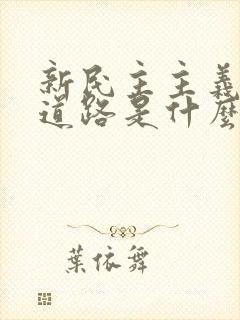 新民主主義
道路是什麼
葉依舞